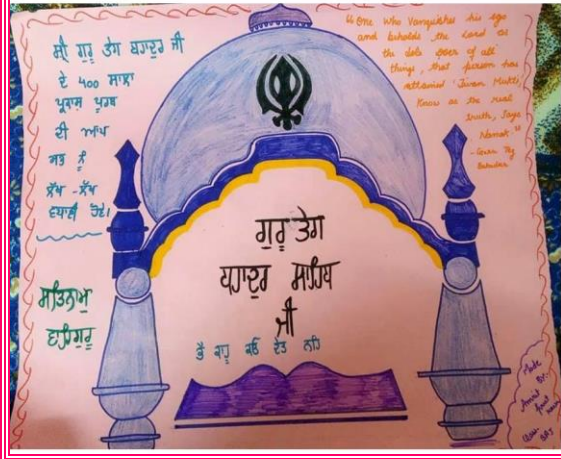 ਸ੍ਰੀ ਗੁਰੂ ਤੇਗ ਬਹਾਦੁਰ ਜੀ
ਦੇ 400 ਸਾਲਾ
ਪ੍ਰਕਾਸ਼ ਪੁਰਬ
ਦੀ ਆਪ
ਸਭ ਨੂੰ
ਲੱਖ-ਲੱਖ
ਵਧਾਈ ਹੋਵੇ।
ਸਤਿਨਾਮੁ
ਵਾਹਿਗੁਰੂ
"One who Vanquishes his ego
and beholds the Lord as
the sole doer of all
things, that person has
attained 'Jiwan Mukti',
Know as the real
truth, Says
Nanak"
- Guru Teg
Bahadur
ਗੁਰੂ ਤੇਗ
ਬਹਾਦਰ ਸਾਹਿਬ
ਜੀ
ਭੈ ਕਾਹੂ ਕਉ ਦੇਤ ਨਹਿ
Made
By:
Amrit